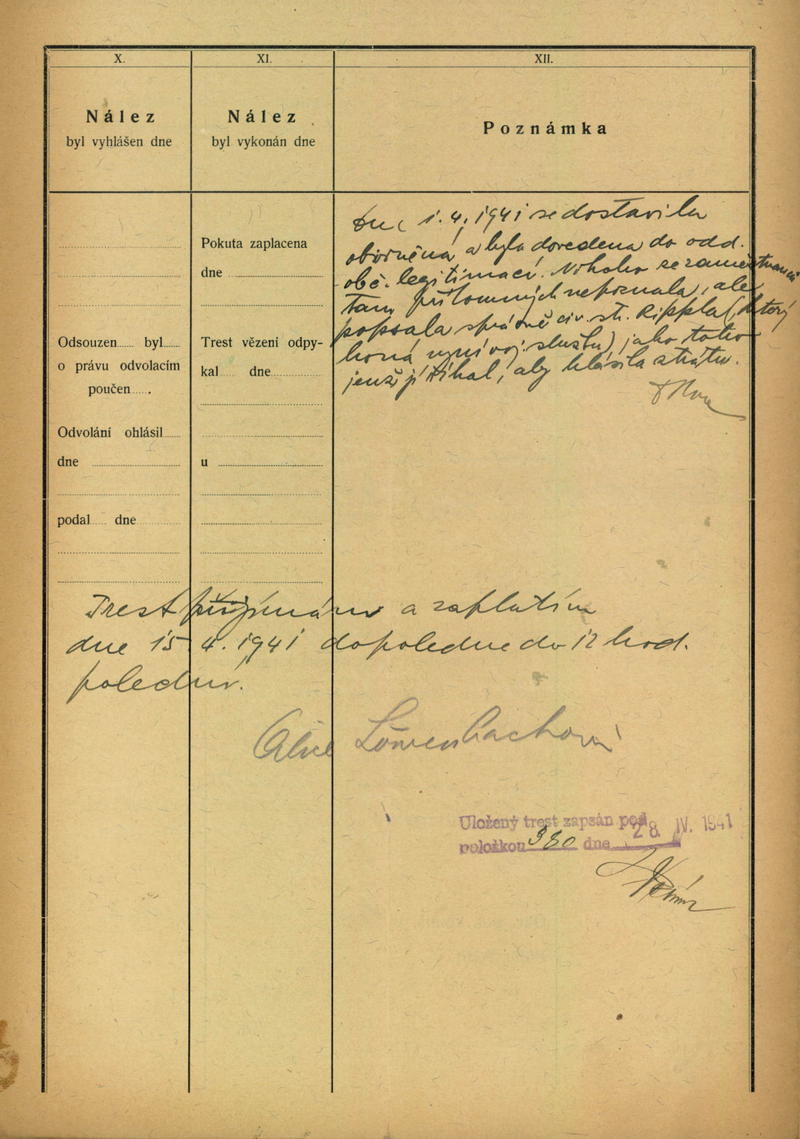 X.
XI.
XII.
Nález
byl vyhlášen dne
Nález
byl vykonán dne
Poznámka
Odsouzen byl
o právu odvolacím
poučen .
Odvolání ohlásil
dne
podal dne
Pokuta zaplacena
dne
Trest vězení odpy-
kal dne
u
1.4.1941 se dostavila
obviněná a byla dovedena do odd.
obč. legitimací. Nikoho ze zaměstnanců
tam přítomných nepoznala, ale
popsala správně civ. st. Rippla (který
koná nyní voj. službu) jako toho
jenž jí říkal, aby hlásila ztrátu.
Trest přijímám a zaplatím
dne 15 4. 1941 dopoledne do 12 hod.
poledne.
Alice Löwenbachová
Uložený trest zapsán pod
28. IV. 1941
položkou 380 dne